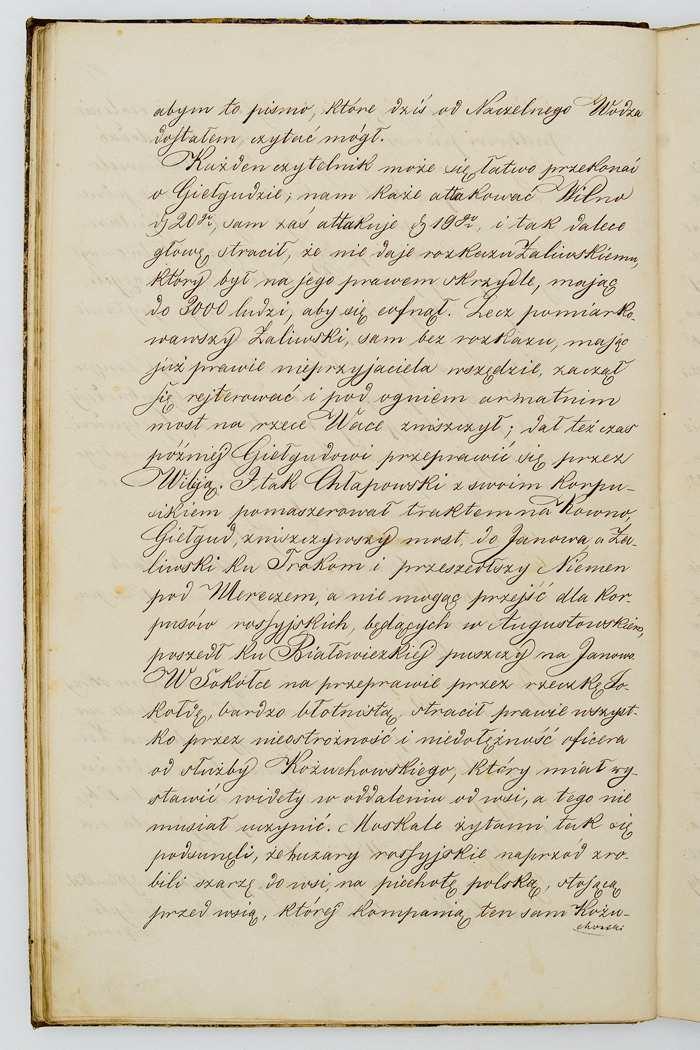 abym to pismo, które dziś od Naczelnego Wodza
dostałem, czytać mógł.
Każden czytelnik może się łatwo przekonać
o Giełgudzie; nam każe attakować Wilno
d. 20go, sam zaś attakuje d. 19go, i tak dalece
głowę stracił, że nie daje rozkazu Zaliwskiemu,
który był na jego prawem skrzydle, mając
do 3000 ludzi, aby się cofnął. Lecz pomiarko-
wawszy Zaliwski, sam bez rozkazu, mając
już prawie nieprzyjaciela wszędzie, zaczął
się rejterować i pod ogniem armatnim
most na rzece Wace zniszczył; dał też czas
później Giełgudowi przeprawić się przez
Wiliją. I tak Chłapowski z swoim korpu-
sikiem pomaszerował traktem na Kowno,
Giełgud, zniszczywszy most, do Janowa a Za-
liwski ku Trokom i przeszedłszy Niemen
pod Mereczem, a nie mogąc przejść dla kor-
pusów rossyjskich, będących w Augustowskiem,
poszedł ku Białowiezkiej puszczy na Janowo.
W Sokółce na przeprawie przez rzeczkę So-
kołdę, bardzo błotnistą stracił prawie wszyst-
ko przez nieostrożność i niedołężność oficera
od służby Kożuchowskiego, który miał wy-
stawić widety w oddaleniu od wsi, a tego nie
musiał uczynić. Moskale żytami tak się
podsunęli, że huzary rossyjskie naprzód zro-
bili szarżę do wsi, na piechotę polską, stojącą
przed wsią, której kompanią ten sam Kożu-
chowski